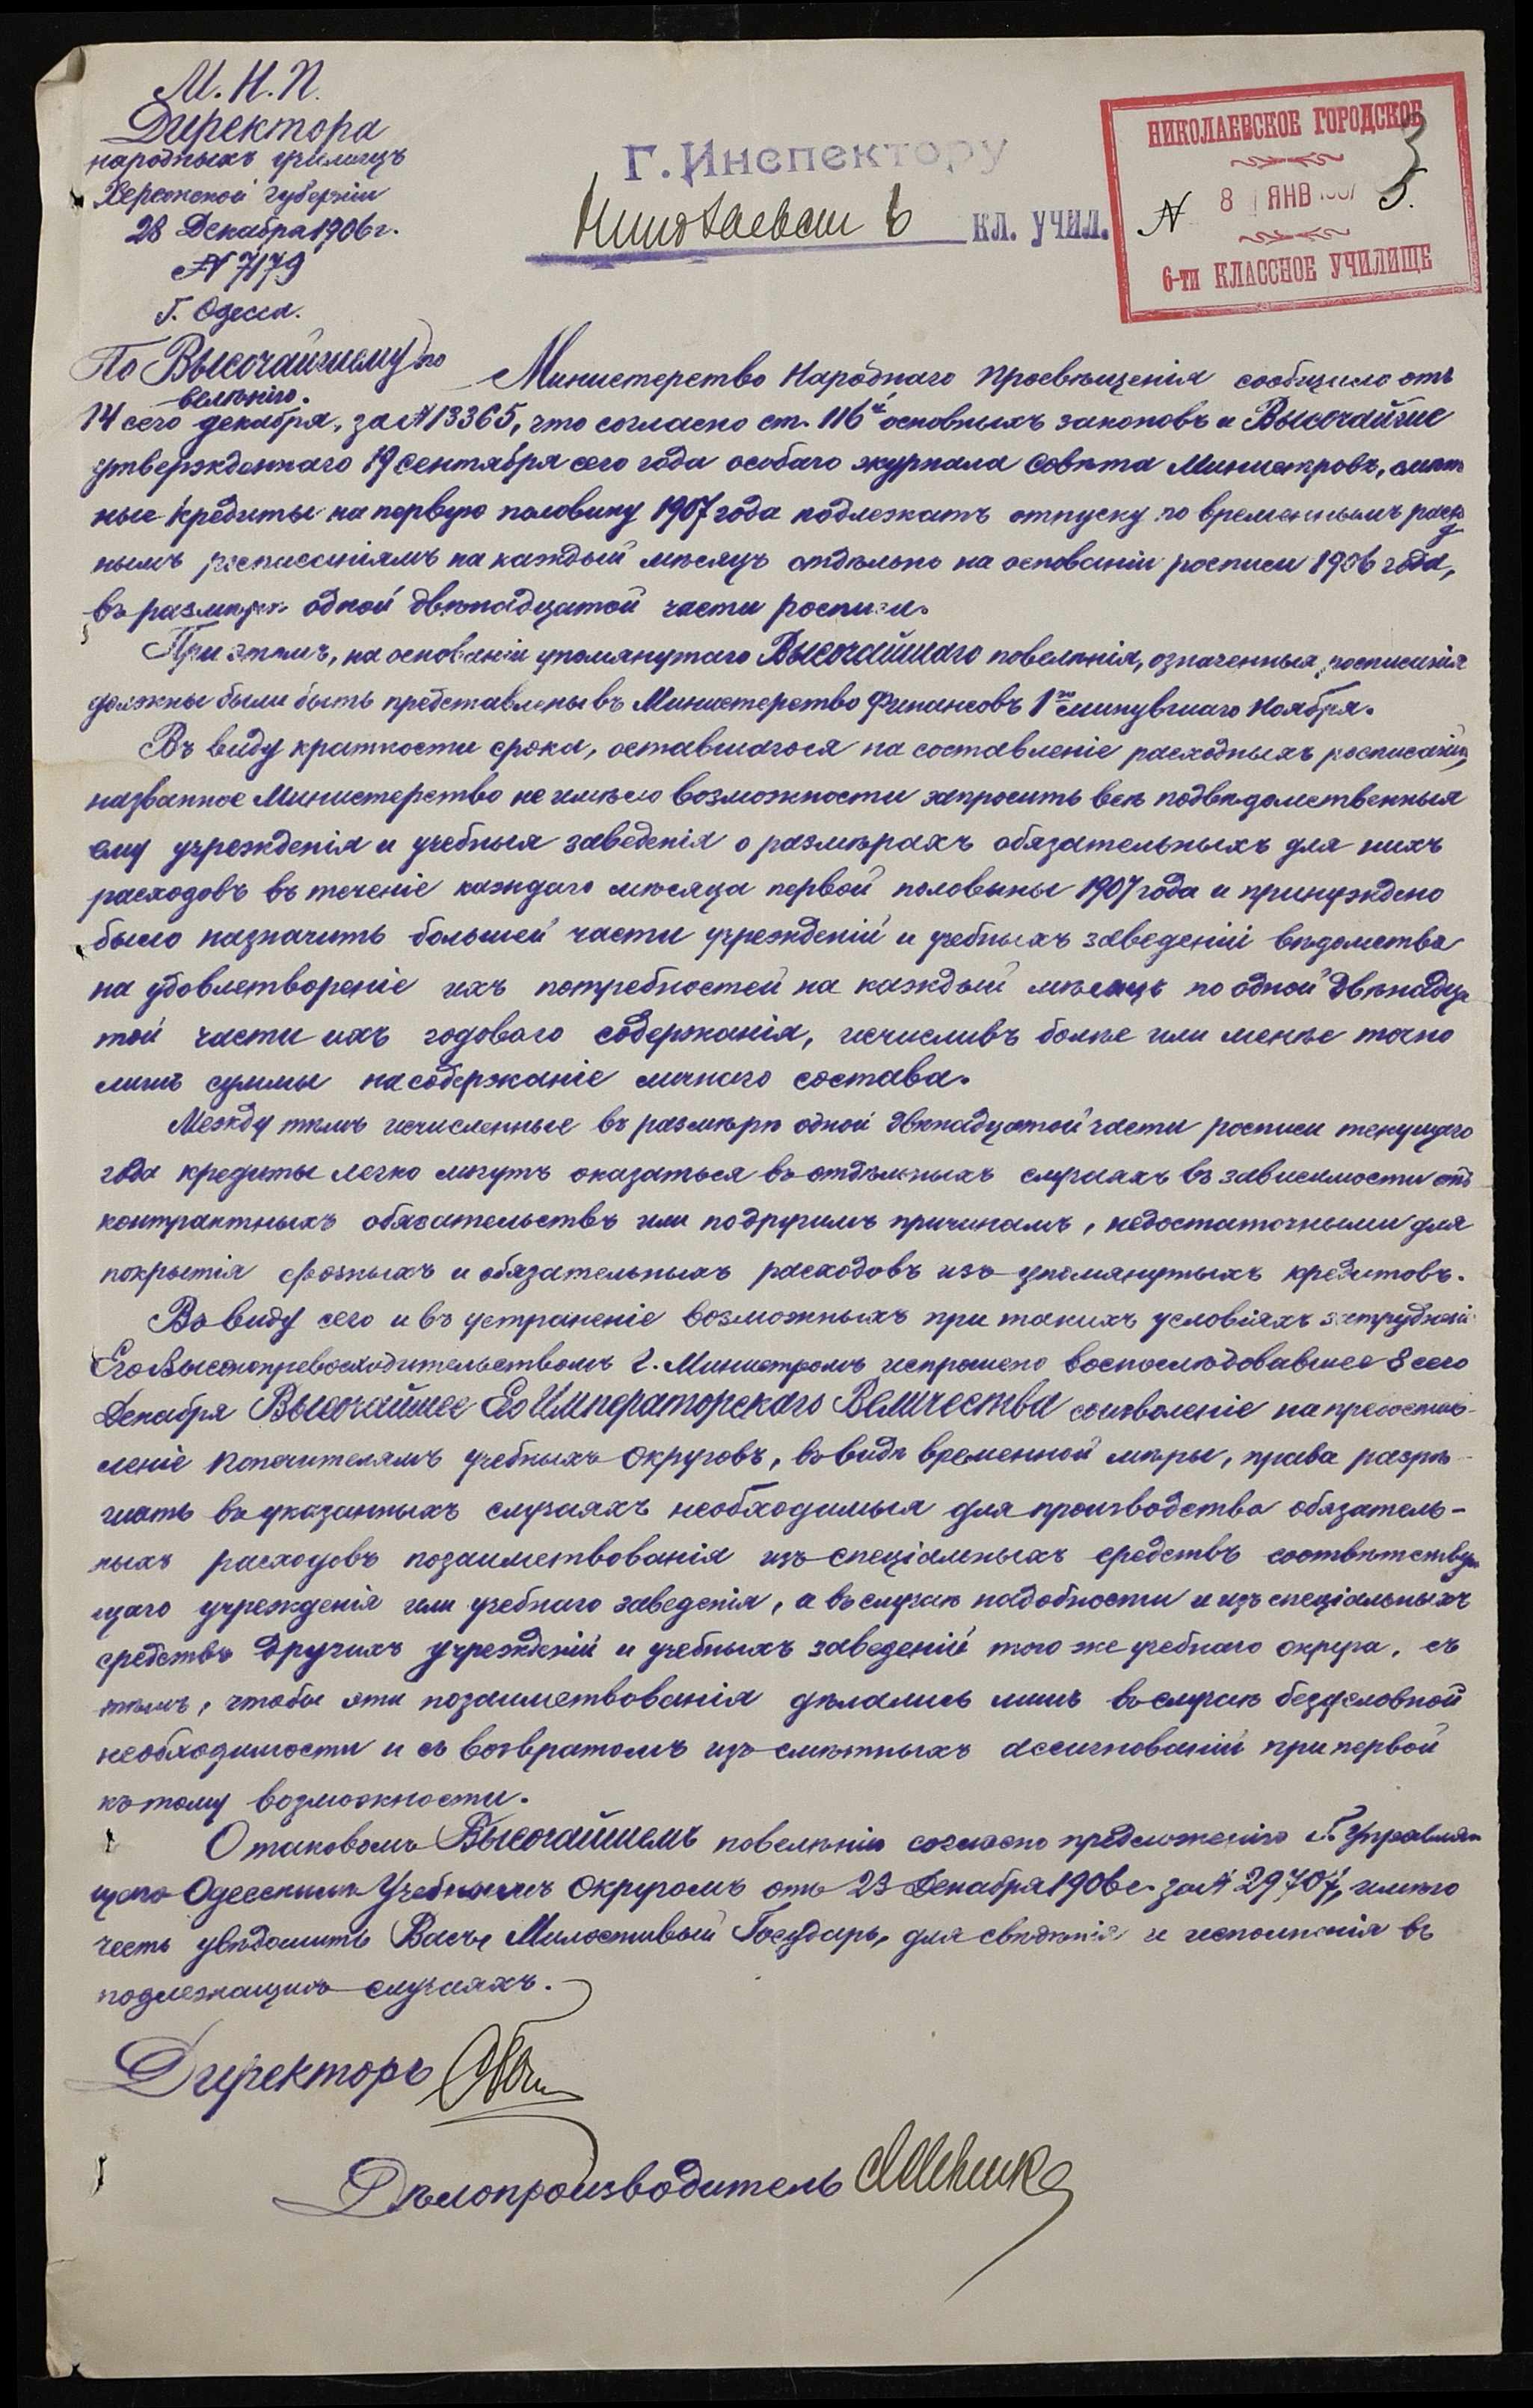 М.Н.П.
Директора
народныхъ училищъ
Херсонской губерніи
28 Декабря 1906 г.
№ 7179
Г. Одесса.
Г. Инспектору
6 КЛ. УЧИЛ.
НИКОЛАЕВСКОЕ ГОРОДСКОЕ
3
№ 8 ЯНВ 1907 5.
6-ти КЛАССНОЕ УЧИЛИЩЕ
По Высочайшему по
велѣнію.
Министерство Народнаго Просвѣщенія сообщило отъ
14 сего декабря, за № 13365, что согласно ст. 116й основныхъ законовъ и Высочайше
утвержденнаго 19 Сентября сего года особаго журнала Совѣта Министровъ, смѣт
ные кредиты на первую половину 1907 года подлежатъ отпуску по временнымъ расхо
нымъ росписаніямъ на каждый мѣсяцъ отдѣльно на основаніи росписи 1906 года,
въ размѣрѣ одной двѣнадцатой части росписи.
При этомъ, на основаніи упомянутаго Высочайшаго повелѣнія, означенныя росписанія
должны были быть представлены въ Министерство Финансовъ 1го минувшаго Ноября.
Въ виду краткости срока, оставшагося на составленіе расходныхъ росписаній,
названное Министерство не имѣло возможности запросить всѣ подвѣдомственныя
ему учрежденія и учебныя заведенія о размѣрахъ обязательныхъ для нихъ
расходовъ въ теченіе каждаго мѣсяца первой половины 1907 года и принуждено
было назначить большей части учрежденій и учебныхъ заведеній вѣдомства
на удовлетвореніе ихъ потребностей на каждый мѣсяцъ по одной двѣнадца
той части ихъ годоваго содержанія, исчисливъ болѣе или менѣе точно
лишь суммы на содержаніе личнаго состава.
Между тѣмъ исчисленные въ размѣрѣ одной двѣнадцатой части росписи текущаго
года кредиты легко могутъ оказаться въ отдѣльныхъ случаяхъ въ зависимости отъ
контрактныхъ обязательствъ или по другимъ причинамъ, недостаточными для
покрытія срочныхъ и обязательныхъ расходовъ изъ упомянутыхъ кредитовъ.
Въ виду сего и въ устраненіе возможныхъ при такихъ условіяхъ затрудненій
Его Высокопревосходительствомъ г. Министромъ испрошено воспослѣдовавшее 8 сего
Декабря Высочайшее Его Императорскаго Величества соизволеніе на предостав-
леніе Попечителямъ учебныхъ Округовъ, въ видѣ временной мѣры, права разрѣ-
шать въ указанныхъ случаяхъ необходимыя для производства обязатель-
ныхъ расходовъ позаимствованія изъ спеціальныхъ средствъ соотвѣтствую
щаго учрежденія или учебнаго заведенія, а въ случаѣ надобности и изъ спеціальныхъ
средствъ другихъ учрежденій и учебныхъ заведеній того же учебнаго округа, съ
тѣмъ, чтобы эти позаимствованія дѣлались лишь въ случаѣ безусловной
необходимости и съ возвратомъ изъ смѣтныхъ ассигнованій при первой
къ тому возможности.
О таковомъ Высочайшемъ повелѣніи согласно предложенію Г. Управляю
щаго Одесскимъ Учебнымъ Округомъ отъ 23 Декабря 1906 г. за № 29707, имѣю
честь увѣдомить Васъ, Милостивый Государь, для свѣдѣнія и исполненія въ
подлежащихъ случаяхъ.
Директоръ
Дѣлопроизводитель